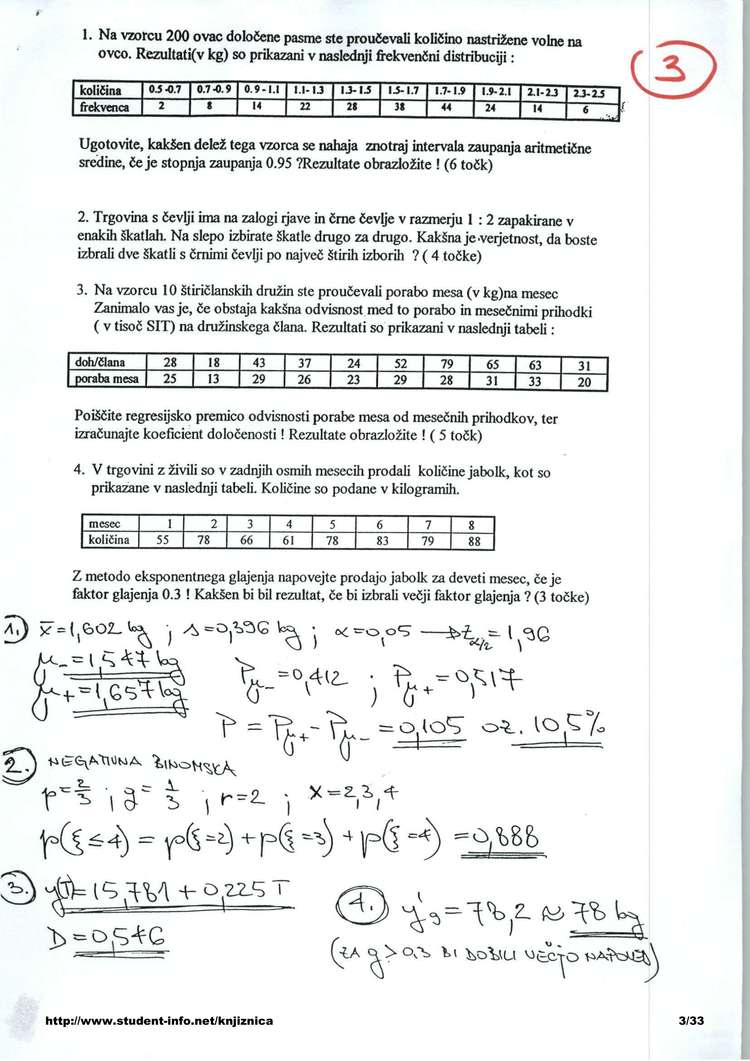 1. Na vzorcu 200 ovac določene pasme ste proučevali količino nastrižene volne na
ovco. Rezultati(v kg) so prikazani v naslednji frekvenčni distribuciji :
3
količina 0.5-0.7 0.7-0.9 0.9-1.1 1.1-1.3 1.3-1.5 1.5-1.7 1.7-1.9 1.9-2.1 2.1-2.3 2.3-2.5
frekvenca 2 8 14 22 28 38 44 24 14 6
Ugotovite, kakšen delež tega vzorca se nahaja znotraj intervala zaupanja aritmetične
sredine, če je stopnja zaupanja 0.95 ?Rezultate obrazložite ! (6 točk)
2. Trgovina s čevlji ima na zalogi rjave in črne čevlje v razmerju 1 : 2 zapakirane v
enakih škatlah. Na slepo izbirate škatle drugo za drugo. Kakšna je verjetnost, da boste
izbrali dve škatli s črnimi čevlji po največ štirih izborih ? ( 4 točke)
3. Na vzorcu 10 štiričlanskih družin ste proučevali porabo mesa (v kg)na mesec
Zanimalo vas je, če obstaja kakšna odvisnost med to porabo in mesečnimi prihodki
( v tisoč SIT) na družinskega člana. Rezultati so prikazani v naslednji tabeli :
doh/člana 28 18 43 37 24 52 79 65 63 31
poraba mesa 25 13 29 26 23 29 28 31 33 20
Poiščite regresijsko premico odvisnosti porabe mesa od mesečnih prihodkov, ter
izračunajte koeficient določenosti ! Rezultate obrazložite ! ( 5 točk)
4. V trgovini z živili so v zadnjih osmih mesecih prodali količine jabolk, kot so
prikazane v naslednji tabeli. Količine so podane v kilogramih.
mesec 1 2 3 4 5 6 7 8
količina 55 78 66 61 78 83 79 88
Z metodo eksponentnega glajenja napovejte prodajo jabolk za deveti mesec, če je
faktor glajenja 0.3 ! Kakšen bi bil rezultat, če bi izbrali večji faktor glajenja ? (3 točke)
1.) x̄=1,602 kg ; s=0,396 kg ; α=0,05 → z_α/2=1,96
μ₋=1,547 kg P_μ₋=0,412 ; P_μ₊=0,517
μ₊=1,657 kg
P = P_μ₊ - P_μ₋ = 0,105 oz. 10,5%
2.) NEGATIVNA BINOMSKA
p=2/3 ; q=1/3 ; r=2 ; x=2,3,4
p(ξ≤4) = p(ξ=2)+p(ξ=3)+p(ξ=4) = 0,888
3.) y(T)=15,781+0,225T
D=0,546
4.) y'₉=78,2≈78 kg
(ZA g>0.3 BI DOBILI VEČJO NAPOVED)
http://www.student-info.net/knjiznica 3/33